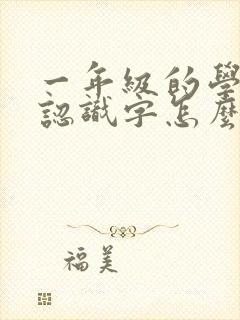 一年級的學
認識字怎麼
福美